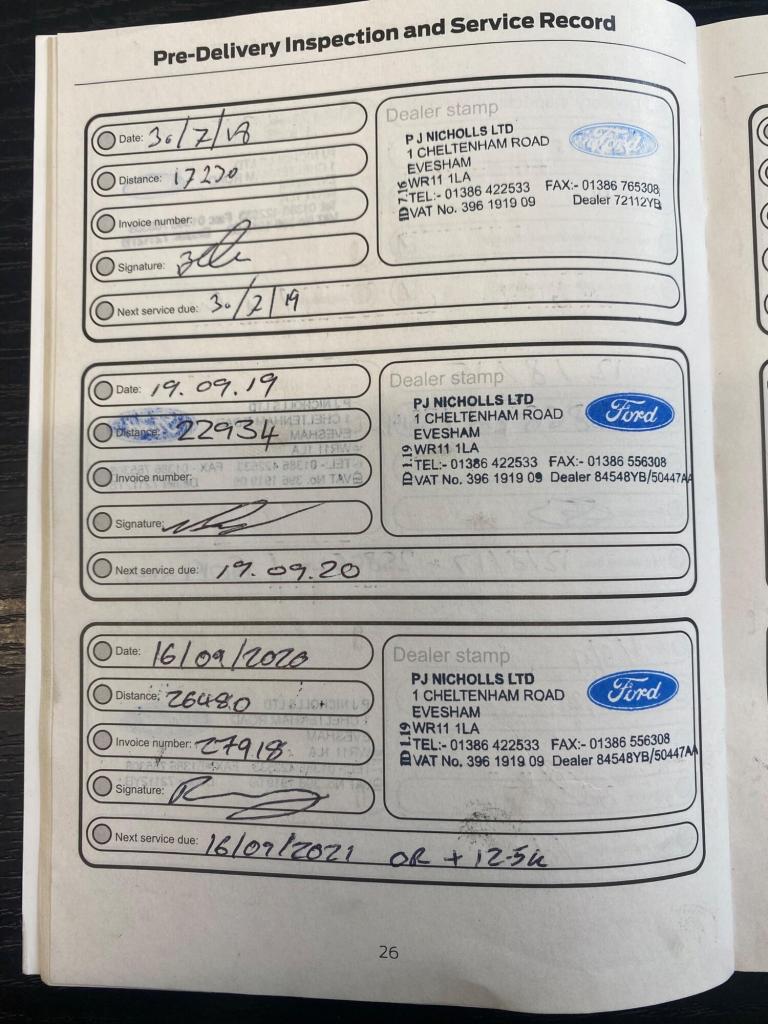 Pre-Delivery Inspection and Service Record
Date: 30/7/18
Distance: 17230
Invoice number:
Signature:
Next service due: 30/7/19
Dealer stamp
P J NICHOLLS LTD
1 CHELTENHAM ROAD
EVESHAM
WR11 1LA
TEL:- 01386 422533 FAX:- 01386 765308
VAT No. 396 1919 09 Dealer 72112YB
ID 7.16
Ford
Date: 19.09.19
Distance: 22934
Invoice number:
Signature:
Next service due: 19.09.20
Dealer stamp
PJ NICHOLLS LTD
1 CHELTENHAM ROAD
EVESHAM
WR11 1LA
TEL:- 01386 422533 FAX:- 01386 556308
VAT No. 396 1919 09 Dealer 84548YB/50447AA
ID 1.19
Ford
Date: 16/09/2020
Distance: 26480
Invoice number: 27918
Signature:
Next service due: 16/09/2021 OR + 12.5K
Dealer stamp
PJ NICHOLLS LTD
1 CHELTENHAM ROAD
EVESHAM
WR11 1LA
TEL:- 01386 422533 FAX:- 01386 556308
VAT No. 396 1919 09 Dealer 84548YB/50447AA
ID 1.19
Ford
26